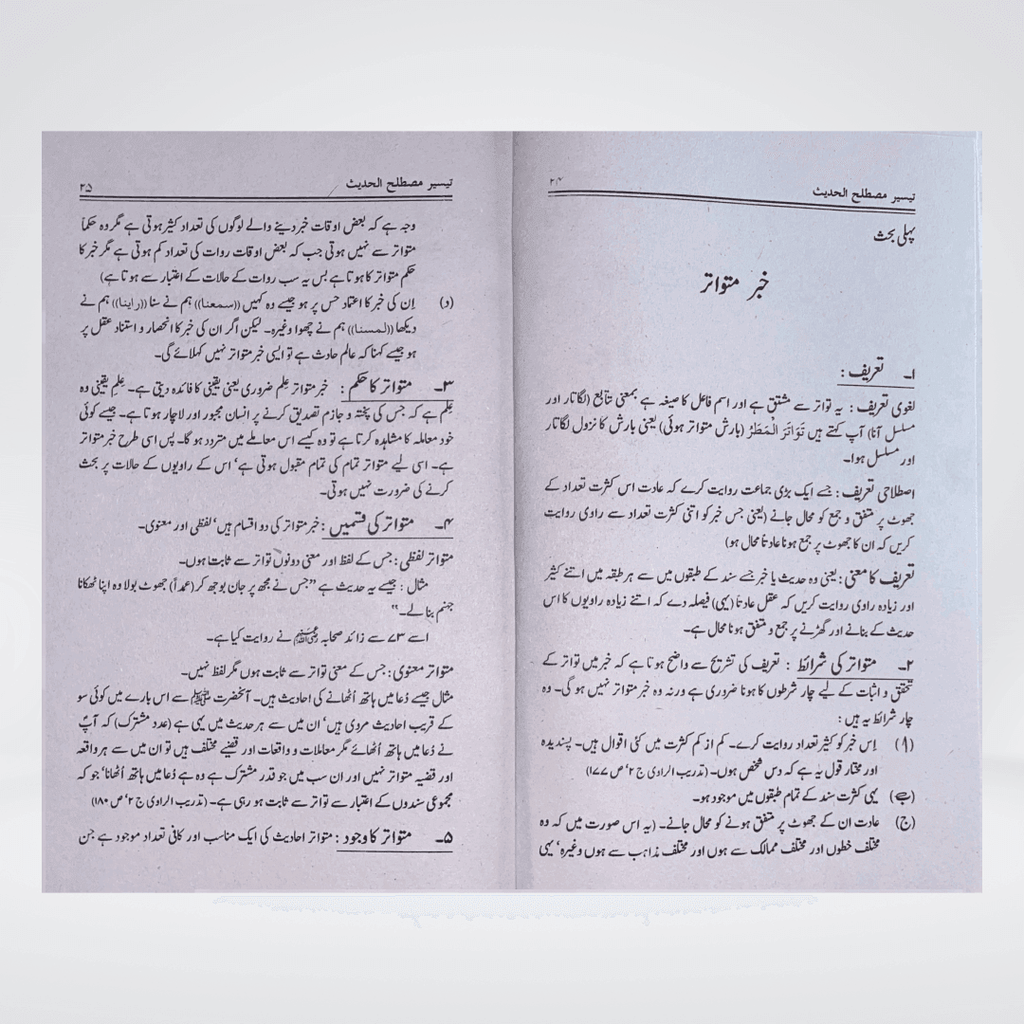 تیسیر مصطلح الحدیث ۲۴
پہلی بحث
خبر متواتر
۱۔ تعریف :
لغوی تعریف : یہ تواتر سے مشتق ہے اور اسم فاعل کا صیغہ ہے بمعنی تتابع (لگاتار اور
مسلسل آنا) آپ کہتے ہیں تَوَاتَرَ الْمَطَرُ (بارش متواتر ہوئی) یعنی بارش کا نزول لگاتار
اور مسلسل ہوا۔
اصطلاحی تعریف : جسے ایک بڑی جماعت روایت کرے کہ عادت اس کثرت تعداد کے
جھوٹ پر متفق و جمع کو محال جانے (یعنی جس خبر کو اتنی کثرت تعداد سے راوی روایت
کریں کہ ان کا جھوٹ پر جمع ہونا عادتاً محال ہو)
تعریف کا معنی : یعنی وہ حدیث یا خبر جسے سند کے طبقوں میں سے ہر طبقہ میں اتنے کثیر
اور زیادہ راوی روایت کریں کہ عقل عادتاً (یہی) فیصلہ دے کہ اتنے زیادہ راویوں کا اس
حدیث کے بنانے اور گھڑنے پر جمع و متفق ہونا محال ہے۔
۲۔ متواتر کی شرائط : تعریف کی تشریح سے واضح ہوتا ہے کہ خبر میں تواتر کے
تحقق و اثبات کے لیے چار شرطوں کا ہونا ضروری ہے ورنہ وہ خبر متواتر نہیں ہو گی۔ وہ
چار شرائط یہ ہیں :
(ا) اِس خبر کو کثیر تعداد روایت کرے۔ کم از کم کثرت میں کئی اقوال ہیں۔ پسندیدہ
اور مختار قول یہ ہے کہ دس شخص ہوں۔ (تدریب الراوی ج ۲‘ ص ۱۷۷)
(ب) یہی کثرت سند کے تمام طبقوں میں موجود ہو۔
(ج) عادت ان کے جھوٹ پر متفق ہونے کو محال جانے۔ (یہ اس صورت میں کہ وہ
مختلف خطوں اور مختلف ممالک سے ہوں اور مختلف مذاہب سے ہوں وغیرہ‘ یہی
تیسیر مصطلح الحدیث ۲۵
وجہ ہے کہ بعض اوقات خبر دینے والے لوگوں کی تعداد کثیر ہوتی ہے مگر وہ حکماً
متواتر سے نہیں ہوتی جب کہ بعض اوقات روات کی تعداد کم ہوتی ہے مگر خبر کا
حکم متواتر کا ہوتا ہے بس یہ سب روات کے حالات کے اعتبار سے ہوتا ہے)
(د) اِن کی خبر کا اعتماد حس پر ہو جیسے وہ کہیں ((سمعنا)) ہم نے سنا ((راینا)) ہم نے
دیکھا ((لمسنا)) ہم نے چھوا وغیرہ۔ لیکن اگر ان کی خبر کا انحصار و استناد عقل پر
ہو جیسے کہنا کہ عالم حادث ہے تو ایسی خبر متواتر نہیں کہلائے گی۔
۳۔ متواتر کا حکم : خبر متواتر علم ضروری یعنی یقینی کا فائدہ دیتی ہے۔ علم یقینی وہ
علم ہے کہ جس کی پختہ و جازم تصدیق کرنے پر انسان مجبور اور لاچار ہوتا ہے۔ جیسے کوئی
خود معاملہ کا مشاہدہ کرتا ہے تو وہ کیسے اس معاملے میں متردد ہو گا۔ پس اسی طرح خبر متواتر
ہے۔ اسی لیے متواتر تمام کی تمام مقبول ہوتی ہے‘ اس کے راویوں کے حالات پر بحث
کرنے کی ضرورت نہیں ہوتی۔
۴۔ متواتر کی قسمیں : خبر متواتر کی دو اقسام ہیں‘ لفظی اور معنوی۔
متواتر لفظی : جس کے لفظ اور معنی دونوں تواتر سے ثابت ہوں۔
مثال : جیسے یہ حدیث ہے ”جس نے مجھ پر جان بوجھ کر (عمداً) جھوٹ بولا وہ اپنا ٹھکانا
جہنم بنا لے۔“
اسے ۷۳ سے زائد صحابہ رضی اللہ عنہم نے روایت کیا ہے۔
متواتر معنوی : جس کے معنی تواتر سے ثابت ہوں مگر لفظ نہیں۔
مثال جیسے دُعا میں ہاتھ اُٹھانے کی احادیث ہیں۔ آنحضرت ﷺ سے اس بارے میں کوئی سو
کے قریب احادیث مروی ہیں‘ ان میں سے ہر حدیث میں یہی ہے (عدد مشترک) کہ آپؐ
نے دُعا میں ہاتھ اُٹھائے مگر معاملات و واقعات اور قضیے مختلف ہیں تو ان میں سے ہر واقعہ
اور قضیہ متواتر نہیں اور ان سب میں جو قدر مشترک ہے وہ ہے دُعا میں ہاتھ اُٹھانا‘ جو کہ
مجموعی سندوں کے اعتبار سے تواتر سے ثابت ہو رہی ہے۔ (تدریب الراوی ج ۲‘ ص ۱۸۰)
۵۔ متواتر کا وجود : متواتر احادیث کی ایک مناسب اور کافی تعداد موجود ہے جن